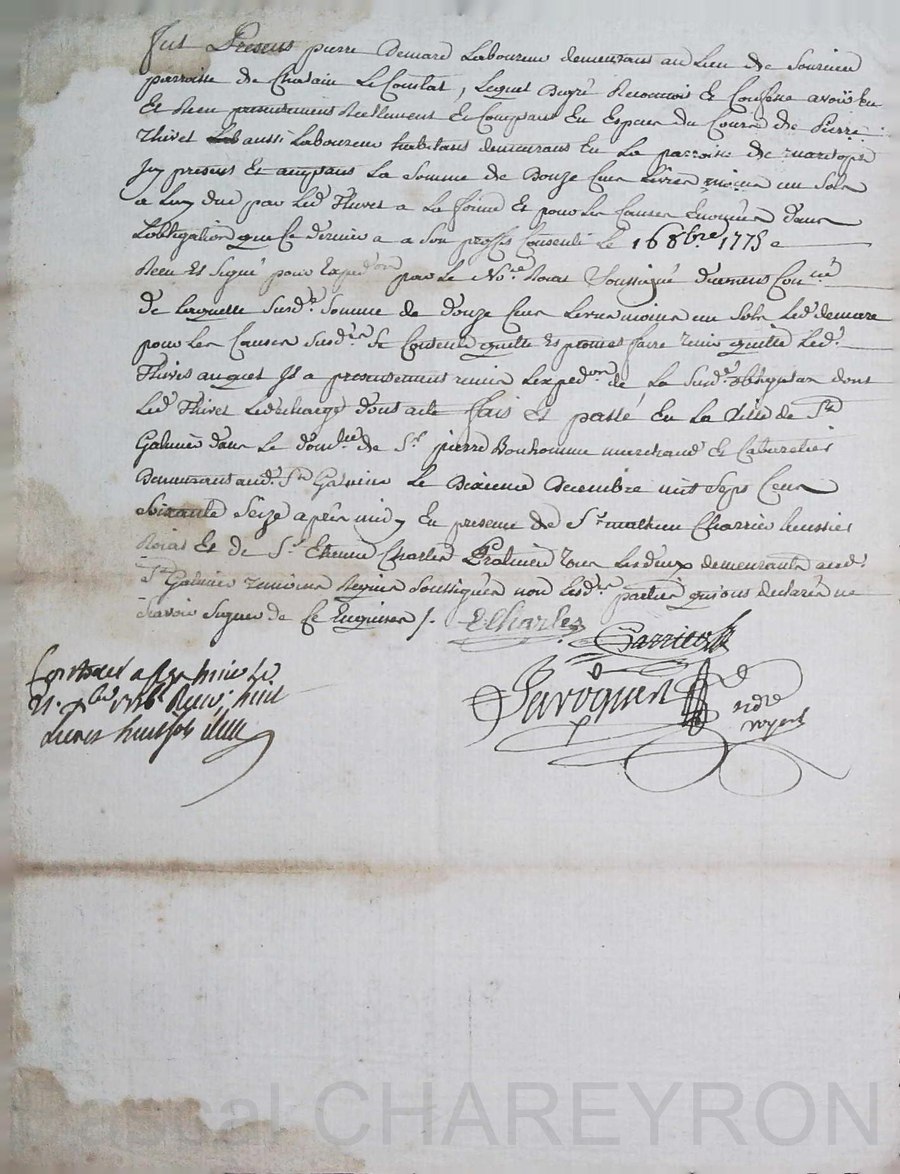 Fut Present pierre Demare Laboureur demeurant au Lieu de Sourieu
parroisse de Chatain Le Comtal, Lequel Degré Reconnois Et Confesse avoir Eu
Et Receu presentement Reellement Et Comptant En Especes du Cours de Pierre
Thivet aussi Laboureur habitant demeurant En La parroisse de
Icy present Et acceptant La Somme de Douze Cens Livres moins un Sols
a Luy due par Led. Thivet a La forme Et pour Les Causes Enoncées dans
Lobligation que Ce dernier a a Son proffit Consenti Le 16 8bre 1775
Receu Et Signé pour Exped.on par Le No.re Roial Soussigné
De Laquelle Susd.e Somme de douze Cens Livres moins un Sols Led. demare
pour Les Causes Susd.es Se Contente quitte Et promet faire tenir quitte Led.
Thivet auquel Il a presentement remis Lexped.on de La Susd.e obligation dont
Led. Thivet Led. charge dont acte fait Et passé En La Ville de St
Galmier dans Le dom.lle de Sr pierre Bonhomme marchand Et Cabaretier
Demeurant aud. St Galmier Le Dixieme Decembre mil Sept Cens
Soixante Seize après midy En presence de Sr mathieu Charrier huissier
Roial Et de Sr Etienne Charles Praticien tous Lesdeux demeurants aud.
St Galmier temoins Requis Soussignés non Lesd.es parties qui ont declarés ne
Scavoir Signer de Ce Enquises /. ECharles
Controlé a St Galmier Le
21 Xbre 1776 Receu huit
Livres huit sols